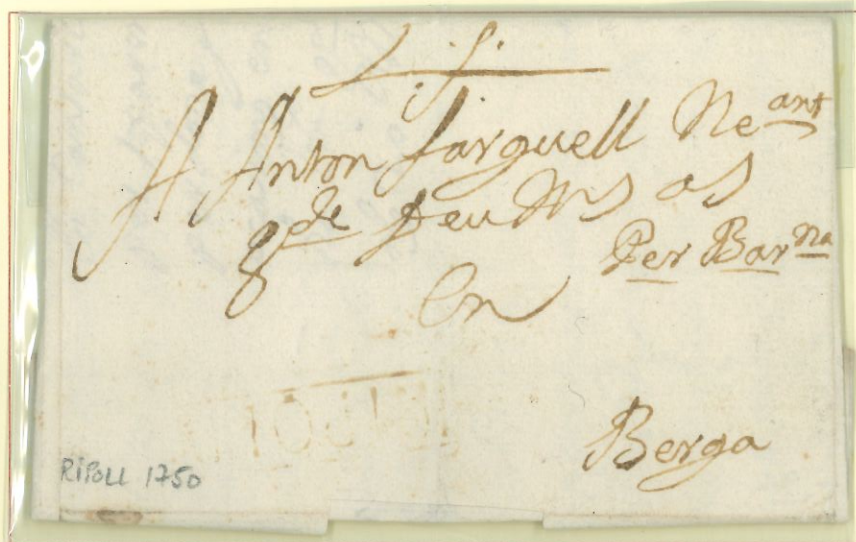 A Anton farguell Ne^ant
g^de Deu
Per Bar^na
En
Berga
RIPOLL 1750